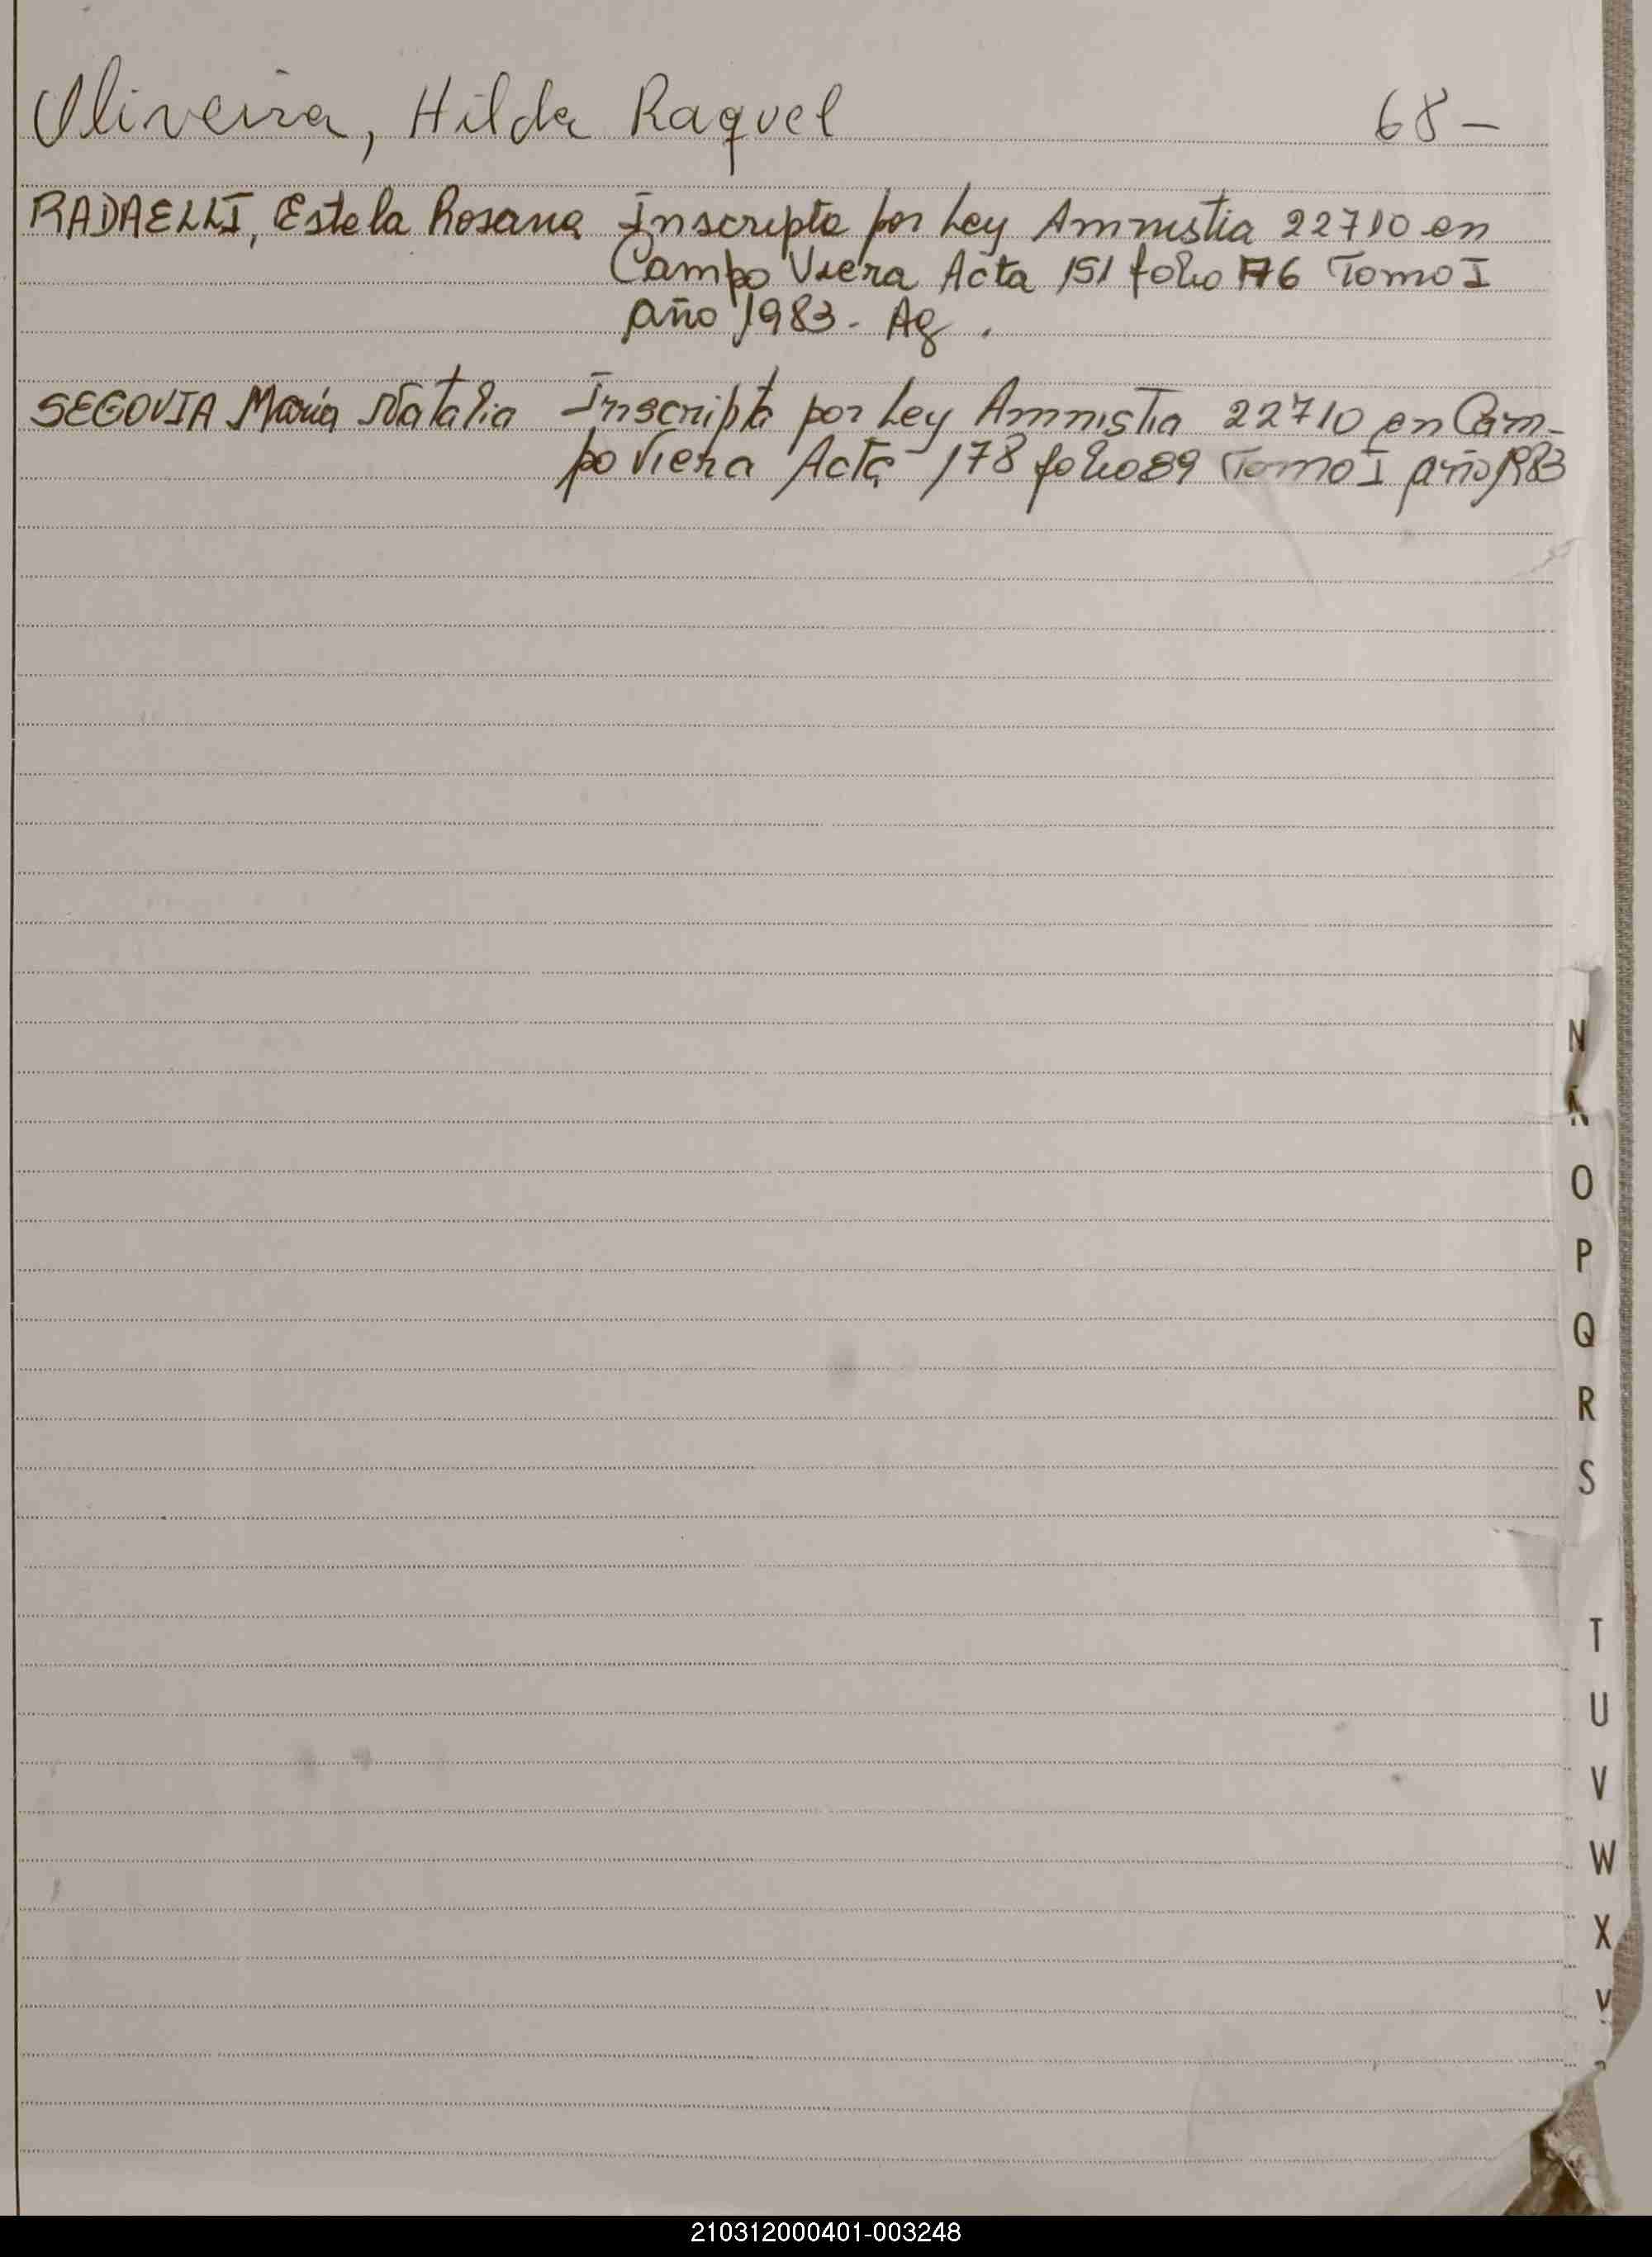 Oliveira, Hilda Raquel 68-
RADAELLI, Estela Rosana Inscripta por Ley Amnistia 22710 en
Campo Viera Acta 151 folio 76 Tomo I
año 1983 - Ag.
SEGOVIA María Natalia Inscripta por Ley Amnistia 22710 en Cam-
po Viera Acta 178 folio 89 Tomo I año 1983
N
O
P
Q
R
S
T
U
V
W
X
210312000401-003248